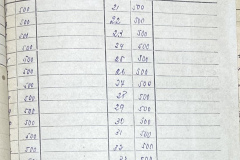 500 21 500
500 22 500
500 23 500
500 24 500
500 25 500
500 26 500
500 27 500
500 28 500
500 29 500
500 30 500
500 31 500
500 500
500 500